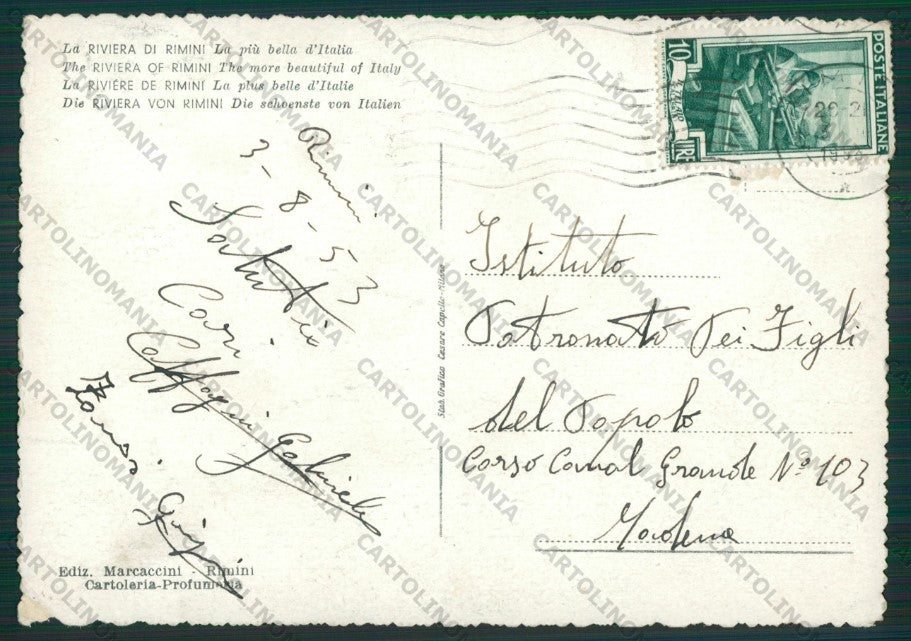 La RIVIERA DI RIMINI La più bella d'Italia
The RIVIERA OF RIMINI The more beautiful of Italy
La RIVIÉRE DE RIMINI La plus belle d'Italie
Die RIVIERA VON RIMINI Die schoenste von Italien
Rimini
3-8-53
Saluti
Cari
Gabriele
POSTE ITALIANE
10
LIRE
Istituto
Patronato Pei Figli
del Popolo
Corso Canal Grande N° 103
Modena
Stab. Grafico Cesare Capello - Milano
Ediz. Marcaccini - Rimini
Cartoleria-Profumeria
CARTOLINOMANIA